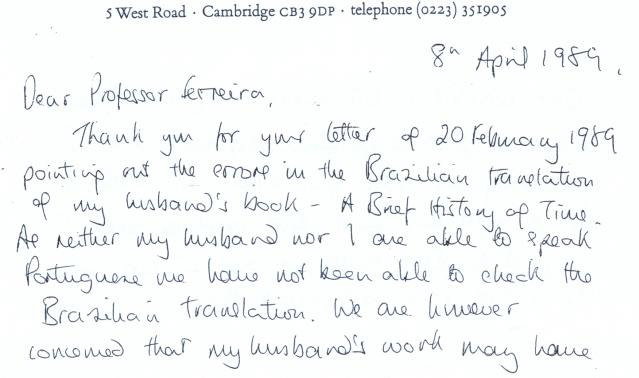 5 West Road · Cambridge CB3 9DP · telephone (0223) 351905
8th April 1989.
Dear Professor Ferreira,
Thank you for your letter of 20 February 1989
pointing out the errors in the Brazilian translation
of my husband's book - A Brief History of Time.
As neither my husband nor I are able to speak
Portuguese we have not been able to check the
Brazilian translation. We are however
concerned that my husband's work may have